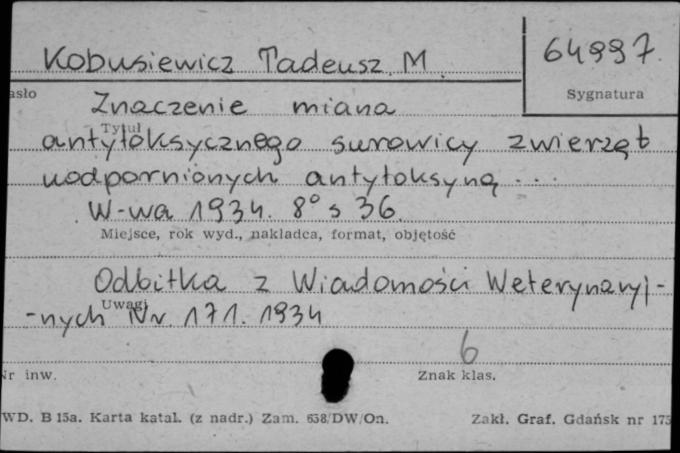 Kobusiewicz Tadeusz M.
64997.
Sygnatura
asło
Znaczenie miana
Tytuł
antytoksycznego surowicy zwierząt
uodpornionych antytoksyną ...
W-wa 1934. 8° s 36.
Miejsce, rok wyd., nakładca, format, objętość
Odbitka z Wiadomości Weterynaryj-
Uwagi
-nych Nr. 171. 1934
6
Nr inw.
Znak klas.
WD. B 15a. Karta katal. (z nadr.) Zam. 658/DW/On.
Zakł. Graf. Gdańsk nr 175